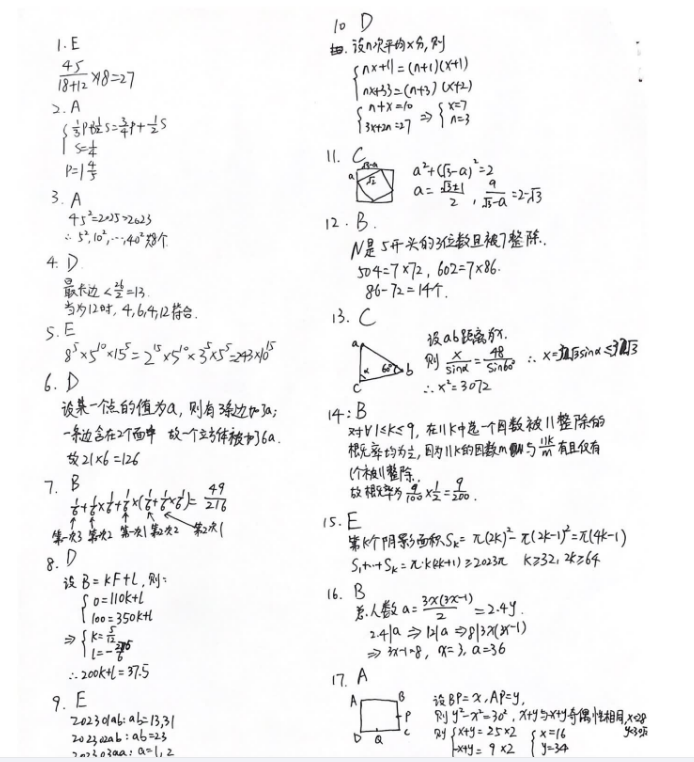 1. E
45/(18+12) ×18=27
2. A
{ 1/3P+1/2S=3/4P+1/2S
S=1/4
P=1 4/5
3. A
45²=2025>2023
∴ 5²,10²,…,40² 共8个
4. D
最长边 < 26/2=13.
当为12时, 4,6,4,12符合.
5. E
8⁵×5¹⁰×15⁵=2¹⁵×5¹⁰×3⁵×5⁵=243×10¹⁵
6. D
设某一个点的值为a, 则有3条边加了a;
一条边含在2个面中 故一个立方体被加了6a.
故21×6=126
7. B
1/6+1/6×1/6+1/6×(1/6+1/6×1/6)=49/216
第一次3 第一次2 第一次1 第二次2 第2次1
8. D
设B=kF+l, 则:
{ 0=110k+l
100=350k+l
⇒ { k=5/12
∴200k+l=37.5
9. E
202301ab: ab=13,31
202302ab: ab=23
202303aa: a=1,2
10 D
设n次平均x分,则
{ nx+11=(n+1)(x+1)
nx+33=(n+3)(x+2)
{ n+x=10
3x+2n=27 ⇒ { x=7
n=3
11. C
√3-a
a √2
a²+(√3-a)²=2
a=(√3±1)/2, a/(√3-a)=2-√3
12. B.
N是5开头的3位数且被7整除.
504=7×72, 602=7×86.
86-72=14个.
13. C
a α 60° b c
设ab距离为x.
则 x/sinα=48/sin60° ∴ x=32√3sinα≤32√3
∴x²=3072
14: B
对∀1≤k≤9, 在11k中选一个因数被11整除的
概率均为1/2, 因为11k的因数m与11k/m有且仅有
1个被11整除.
故概率为9/100×1/2=9/200.
15. E
第k个阴影面积Sₖ=π(2k)²-π(2k-1)²=π(4k-1)
S₁+…+Sₖ=π·k(2k+1)≥2023π k≥32, 2k≥64
16. B
总人数a=3x(3x-1)/2=2.4y.
2.4|a ⇒12|a ⇒8|3x(3x-1)
⇒ 3x-1=8, x=3, a=36
17. A
A B P C Q D
设BP=x, AP=y,
则y²-x²=30², x+y与-x+y奇偶性相同,
则 { x+y=25×2
-x+y=9×2 { x=16
y=34